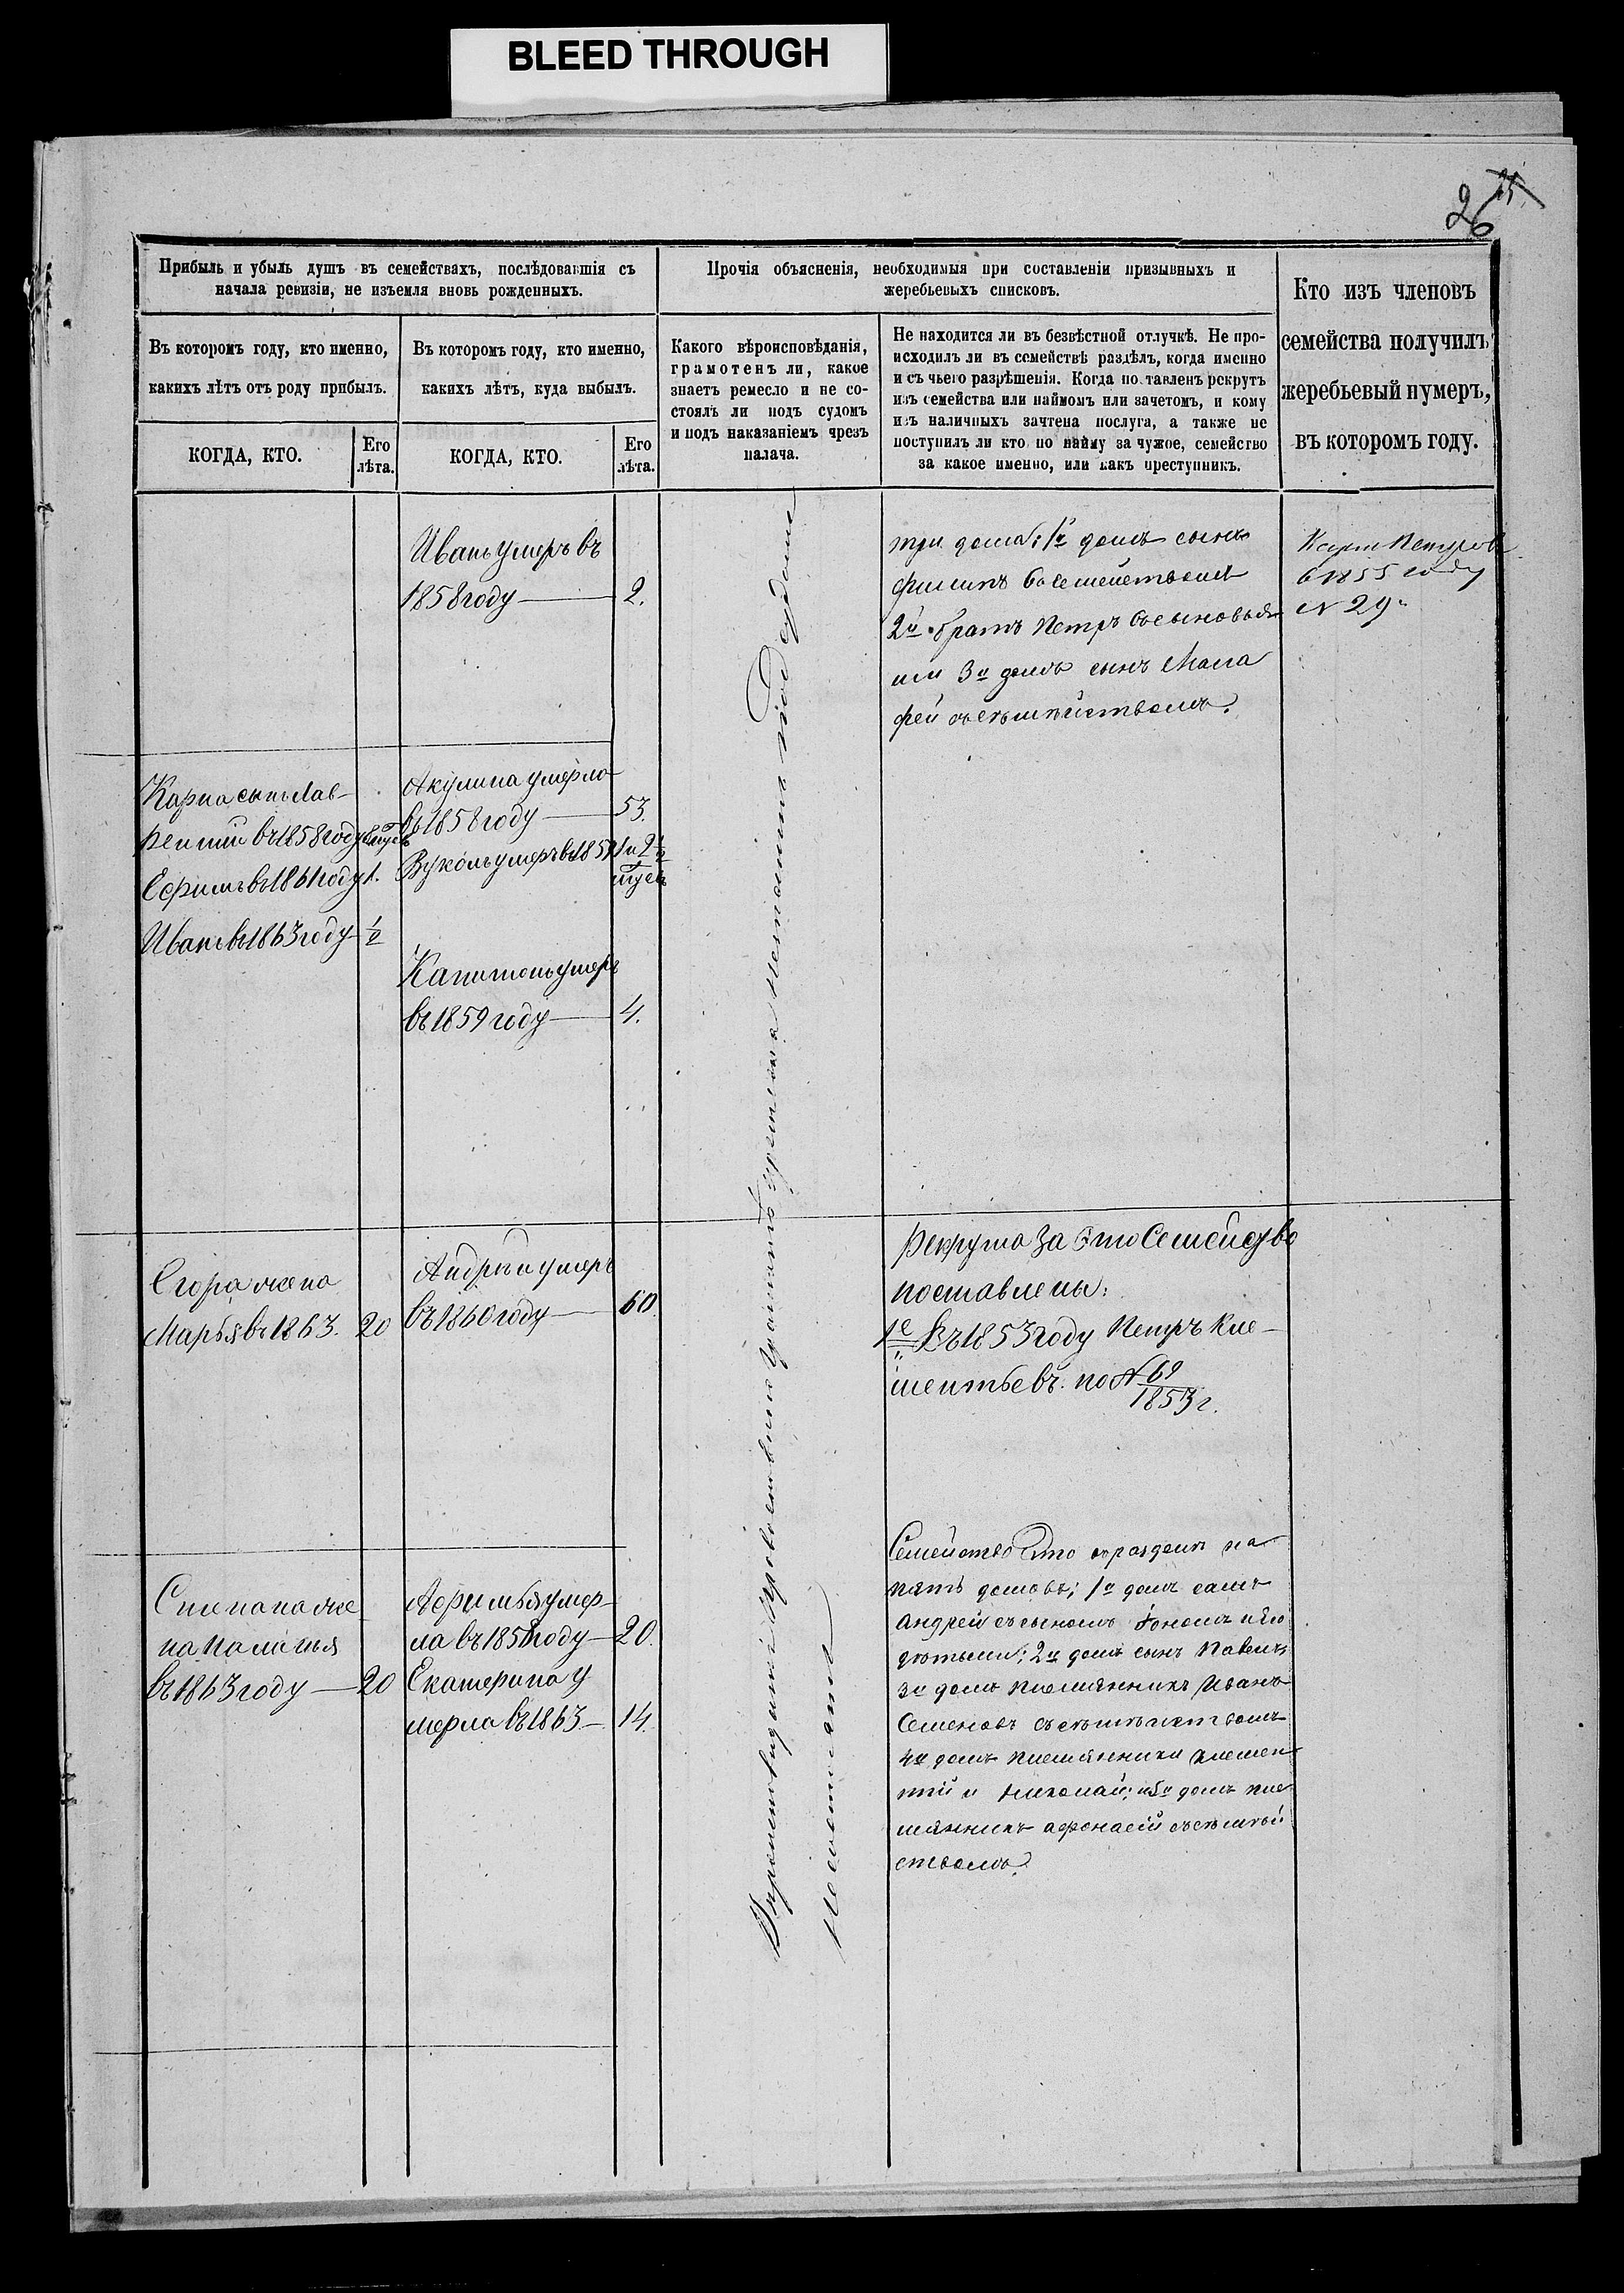 BLEED THROUGH
25
26
Прибыль и убыль душъ въ семействахъ, послѣдовавшія съ
начала ревизіи, не изъемля вновь рожденныхъ.
Прочія объясненія, необходимыя при составленіи призывныхъ и
жеребьевыхъ списковъ.
Кто изъ членовъ
семейства получилъ
жеребьевый нумеръ,
въ которомъ году.
Въ которомъ году, кто именно,
какихъ лѣтъ отъ роду прибылъ.
Въ которомъ году, кто именно,
какихъ лѣтъ, куда выбылъ.
Какого вѣроисповѣданія,
грамотенъ ли, какое
знаетъ ремесло и не со-
стоялъ ли подъ судомъ
и подъ наказаніемъ чрезъ
палача.
Не находится ли въ безвѣстной отлучкѣ. Не про-
исходилъ ли въ семействѣ раздѣлъ, когда именно
и съ чьего разрѣшенія. Когда поставленъ рекрутъ
изъ семейства или наймомъ или зачетомъ, и кому
изъ наличныхъ зачтена послуга, а также не
поступилъ ли кто по найму за чужое, семейство
за какое именно, или какъ преступникъ.
КОГДА, КТО.
Его
лѣта.
КОГДА, КТО.
Его
лѣта.
Иванъ умеръ въ
1858 году — 2.
три дома: 1й домъ сынъ
Филипъ съ семействомъ
2й братъ Петръ съ сыновья
ми 3й домъ сынъ Мала
фей съ семѣйствомъ.
Карпъ Петровъ
в 1855 году
№ 29
Карпа сынъ Лав-
рентий въ 1858 году
Ефимъ въ 1861 году 1.
Иванъ въ 1863 году ½
Акулина умерла
въ 1858 году — 53.
Вуколъ умеръ въ 1857
Капитонъ умеръ
въ 1859 году — 4.
Егора жена
Марья въ 1863. 20
Андрѣй умеръ
въ 1860 году — 60
Рекрута за это Семейство
поставлены:
1е Въ 1853 году Петръ Кле-
ментьевъ. по № 69
1853 г.
Степана же
на Паланья
въ 1863 году — 20
Афимья умер-
ла въ 1858 году — 20.
Екатерина у
мерла въ 1863 — 14.
Семейство Это раздел на
пять домовъ; 1й домъ самъ
Андрей съ сыномъ и его
дѣтьми; 2й домъ сынъ Павелъ;
3й домъ племянникъ Иванъ
Семеновъ съ семѣйствомъ
4й домъ племянники Клемен
тий и Николай; и 5й домъ пле
мянникъ Афонасий съ семѣй
ствомъ.
под судомъ
Несостоятъ